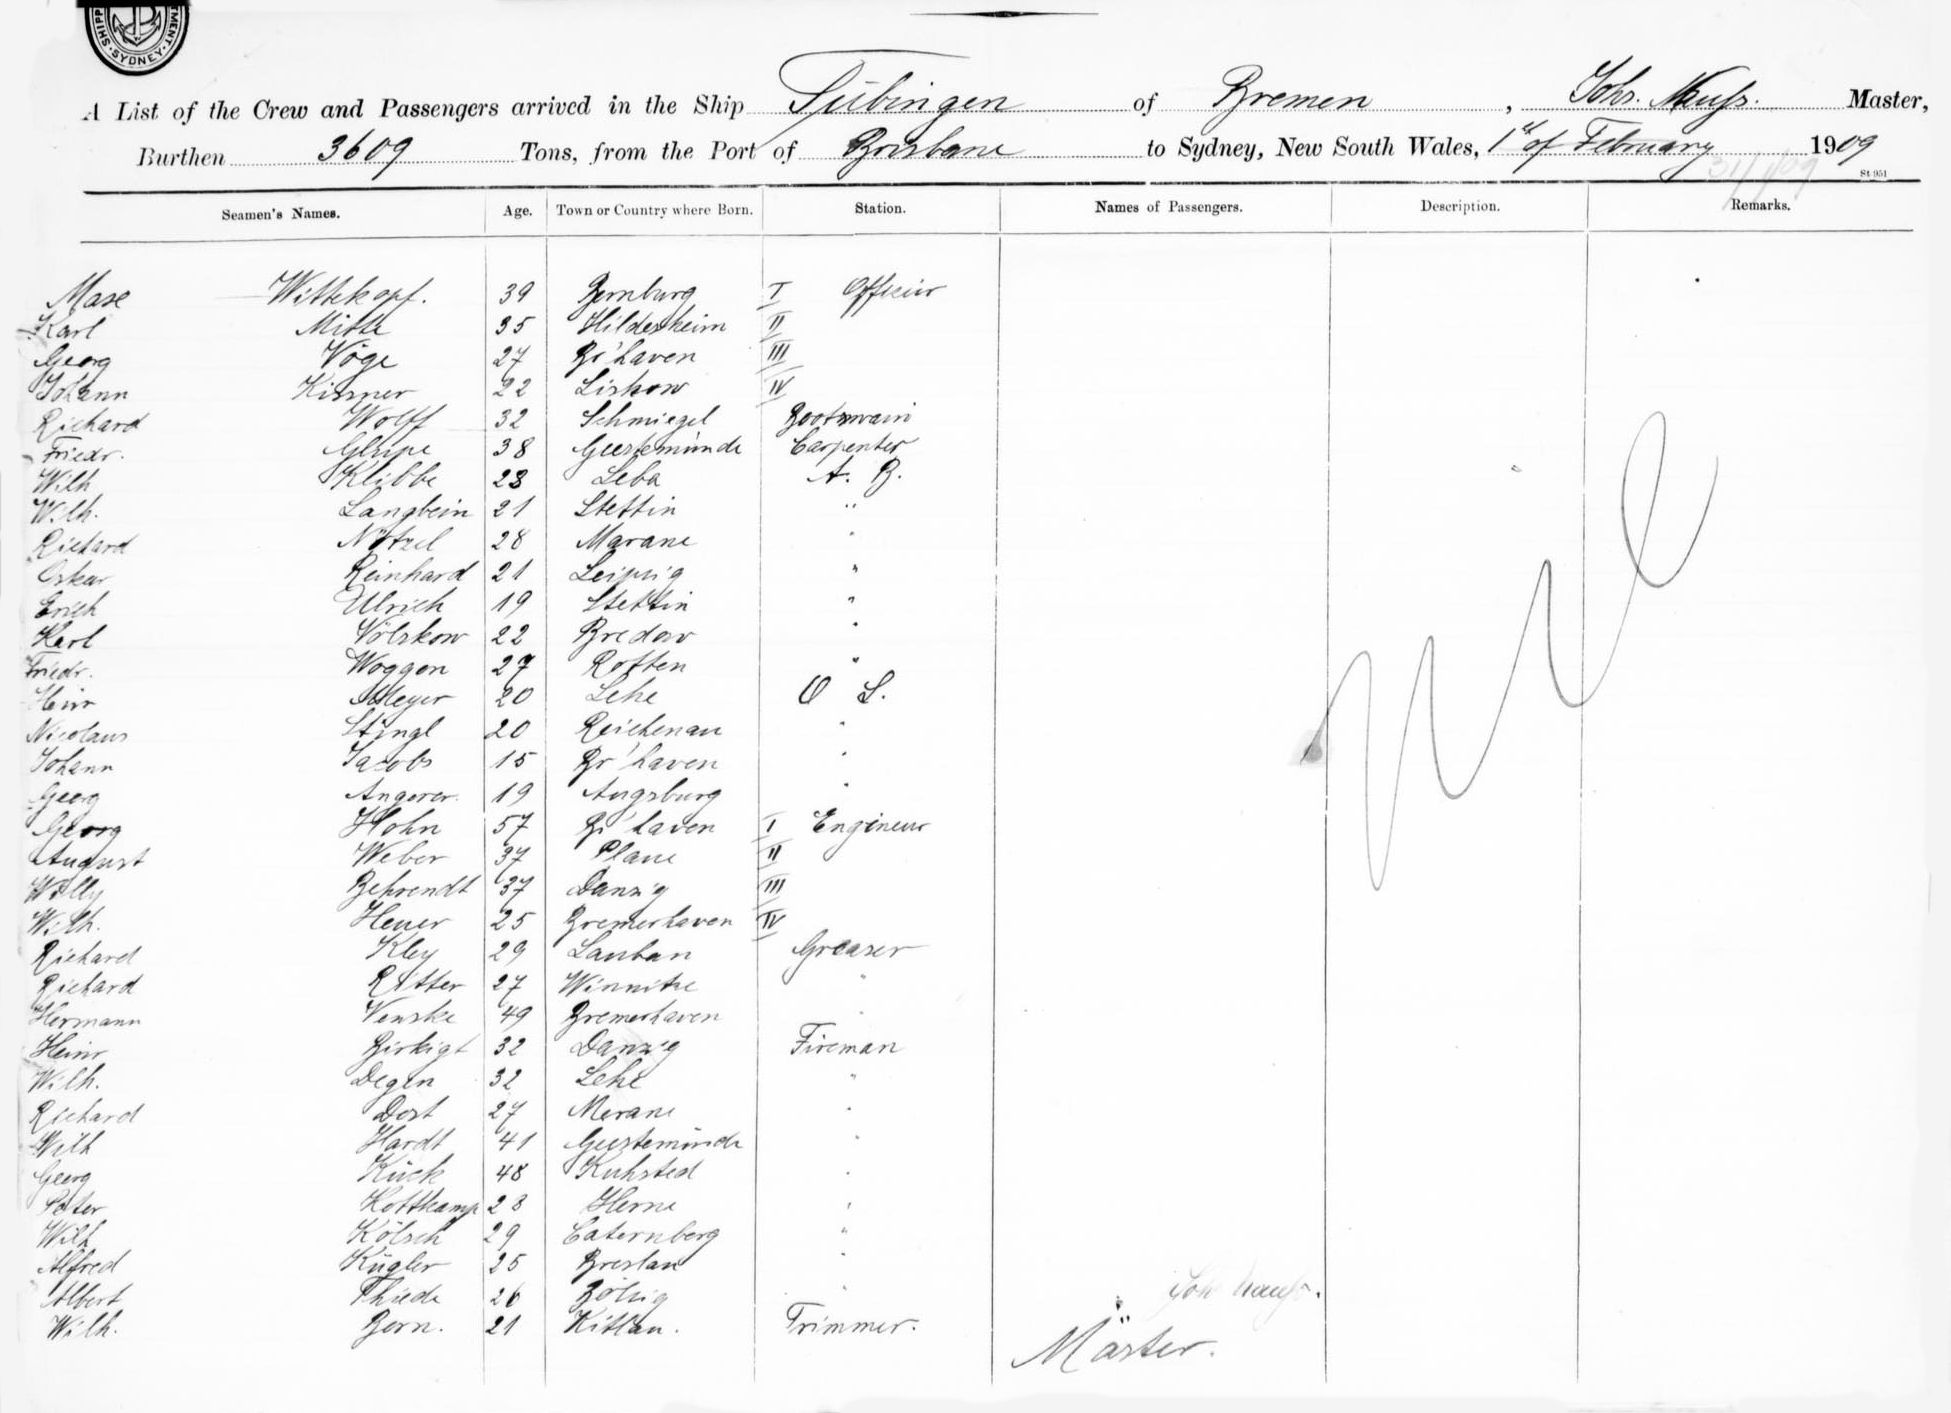 SYDNEY
A List of the Crew and Passengers arrived in the Ship Tübingen of Bremen, Johs. Master,
Burthen 3609 Tons, from the Port of Brisbane to Sydney, New South Wales, 1st of February 1909
31/1/09
St 951
Seamen's Names. Age. Town or Country where Born. Station. Names of Passengers. Description. Remarks.
Max Wittekopf. 39 Bernburg I Officier
Karl Mitte 35 Hildesheim II
Georg Vöge 27 Br'haven III
Johann Kissner 22 Liskow IV
Richard Wolff 32 Schmiegel Bootswain
Friedr. 38 Geestemünde Carpenter
Wilh Klübbe 23 Leba A. B.
Wilh. Langbein 21 Stettin "
Richard Nötzel 28 Marane "
Oskar Reinhard 21 Leipzig "
Erich Ulrich 19 Stettin "
Karl Völskow 22 Bredow "
Friedr. Woggon 27 Rotten "
Heinr Meyer 20 Lehe O S.
Nicolaus Stingl 20 Reichenau "
Johann Jacobs 15 Br'haven "
Georg Angerer. 19 Augsburg "
Georg Hohn 57 Br'haven I Engineur
August Weber 37 Plaue II
Willy Behrendt 37 Danzig III
Wilh. Heuer 25 Bremerhaven IV
Richard Kley 29 Lauban Greaser
Richard Ritter 27 Winnitze "
Hermann Venske 49 Bremerhaven "
Heinr Birkigt 32 Danzig Fireman
Wilh. Degen 32 Lehe "
Richard Dost 27 Merane "
Wilh Hardt 41 Geestemünde "
Georg Kück 48 Kuhsted "
Peter Hottkamp 23 Herne "
Wilh Kölsch 29 Caternberg "
Alfred Kügler 25 Breslau "
Albert Thiede 26 "
Wilh. Born. 21 Kitlau. Trimmer.
nil
Joh
Master.